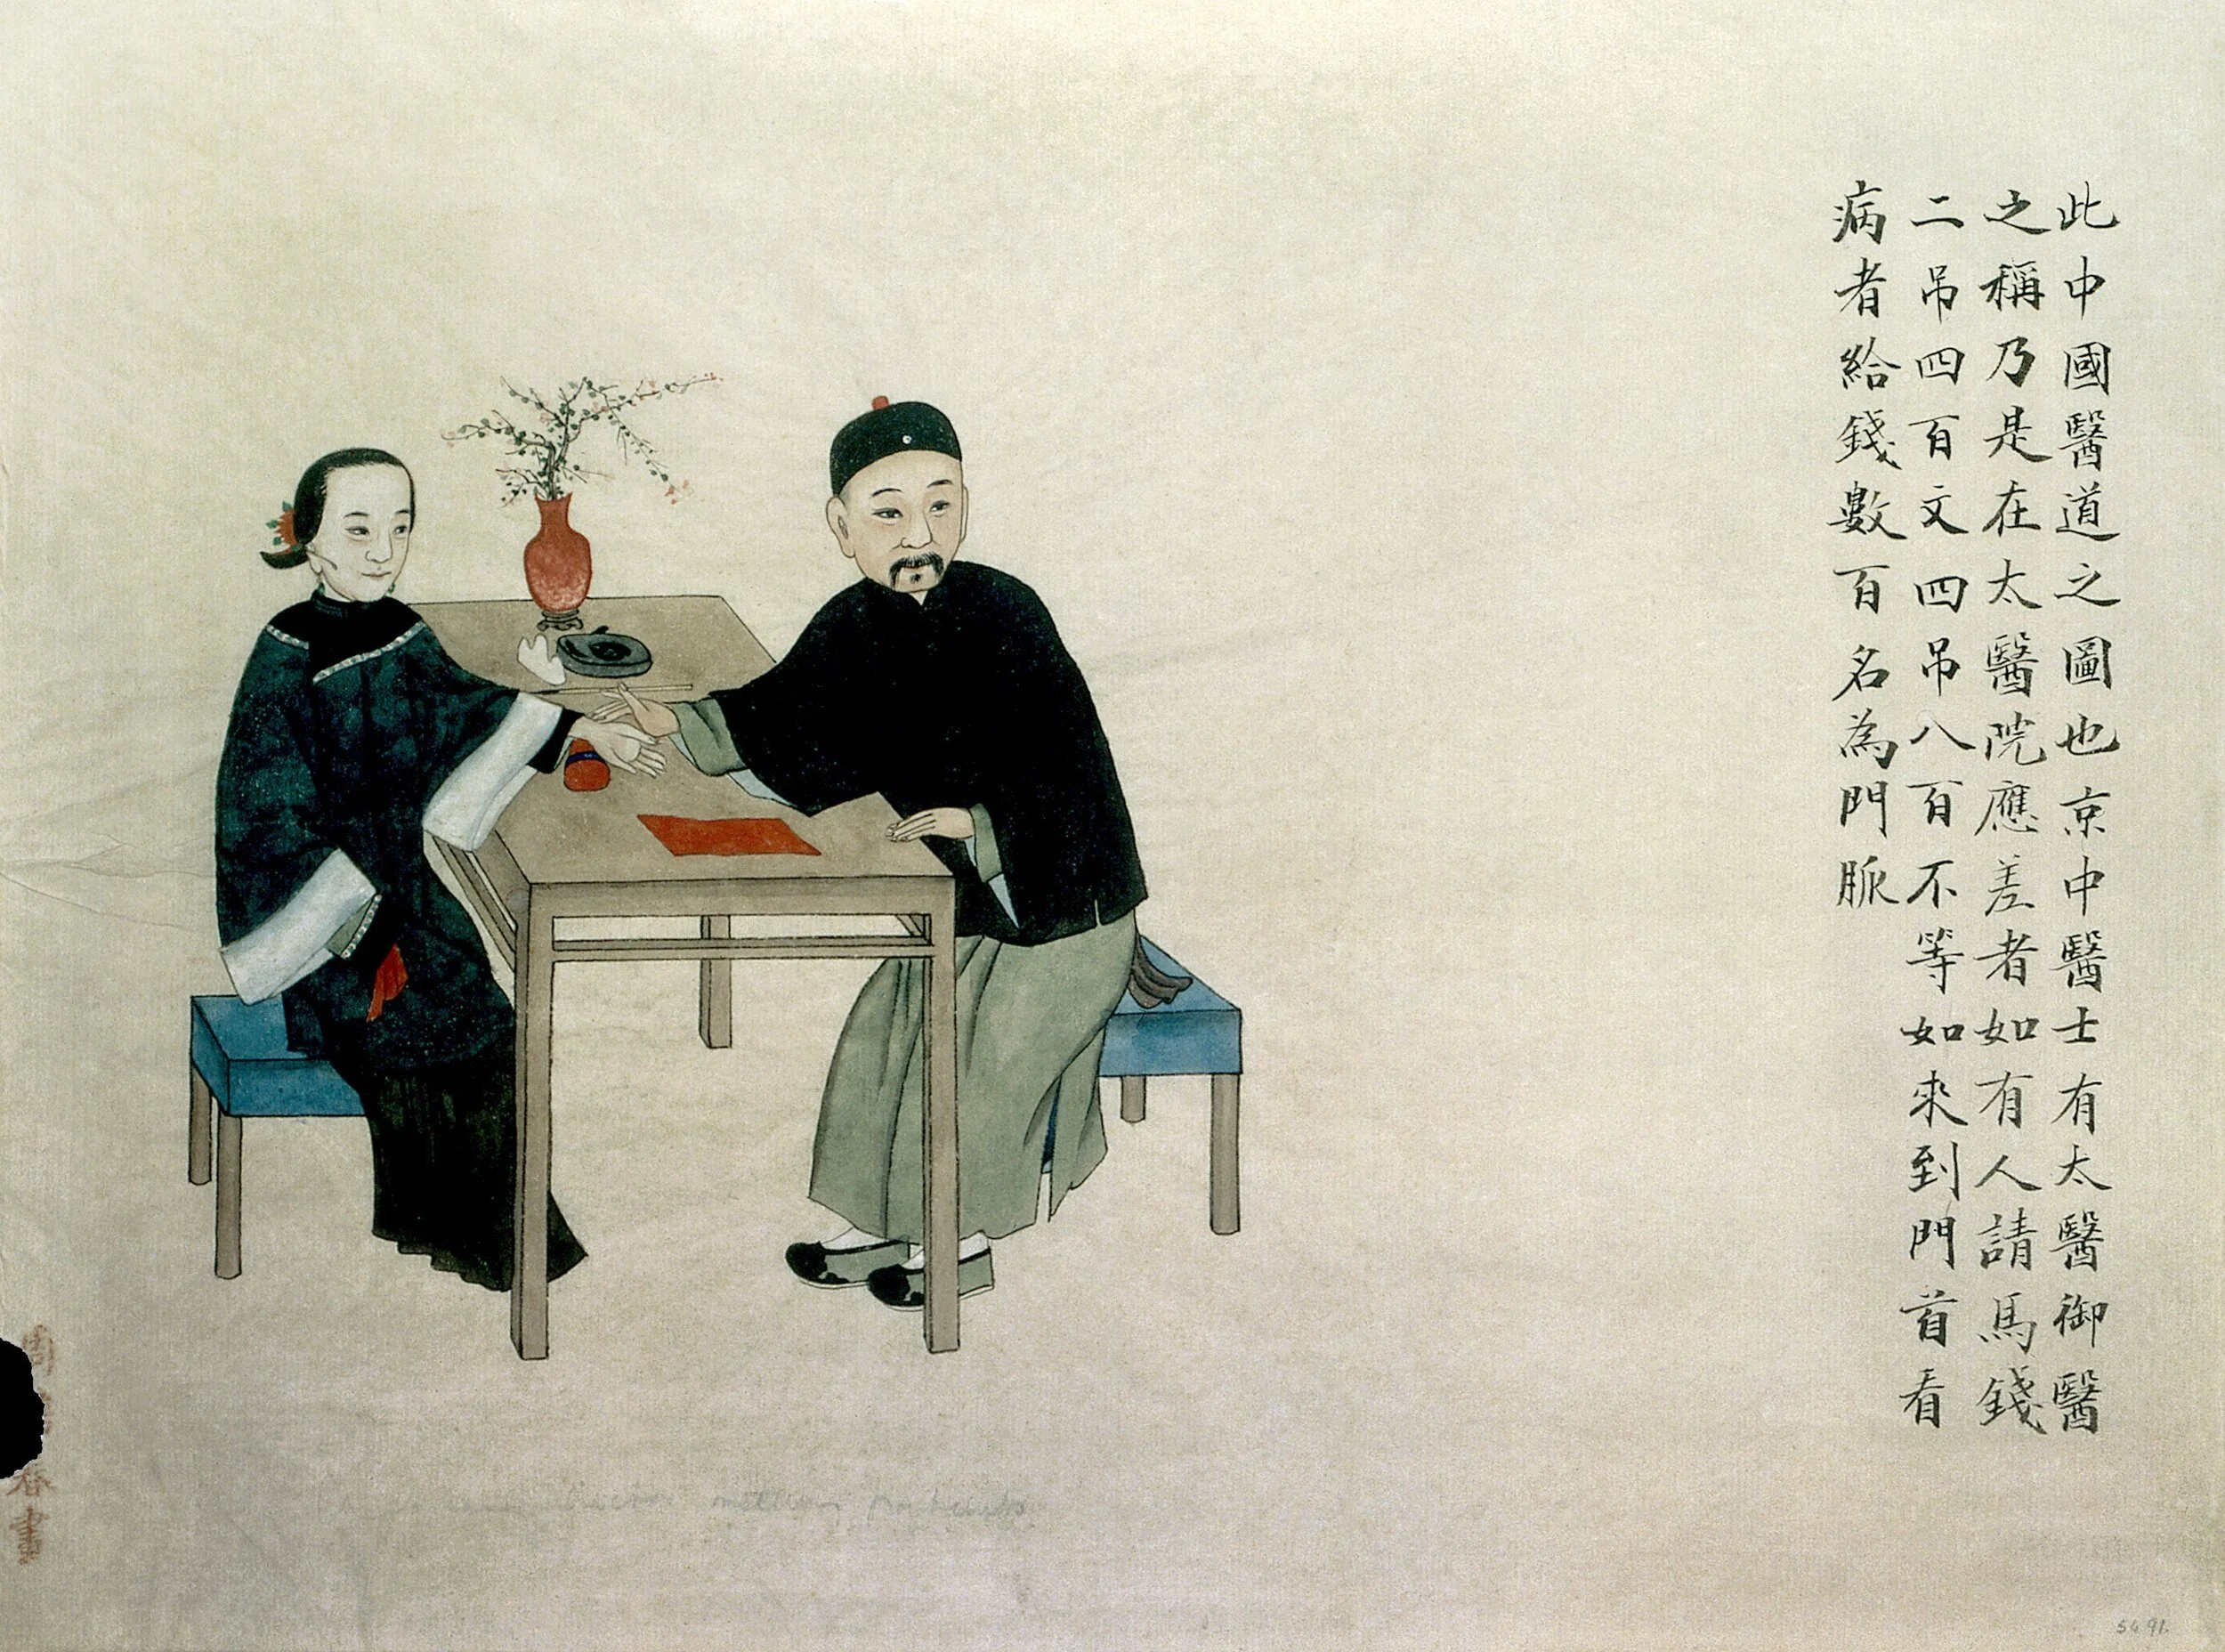 此中國醫道之圖也京中醫士有太醫御醫
之稱乃是在太醫院應差者如有人請馬錢
二吊四百文四吊八百不等如來到門首看
病者給錢數百名為門脈
周 春畫
5491.